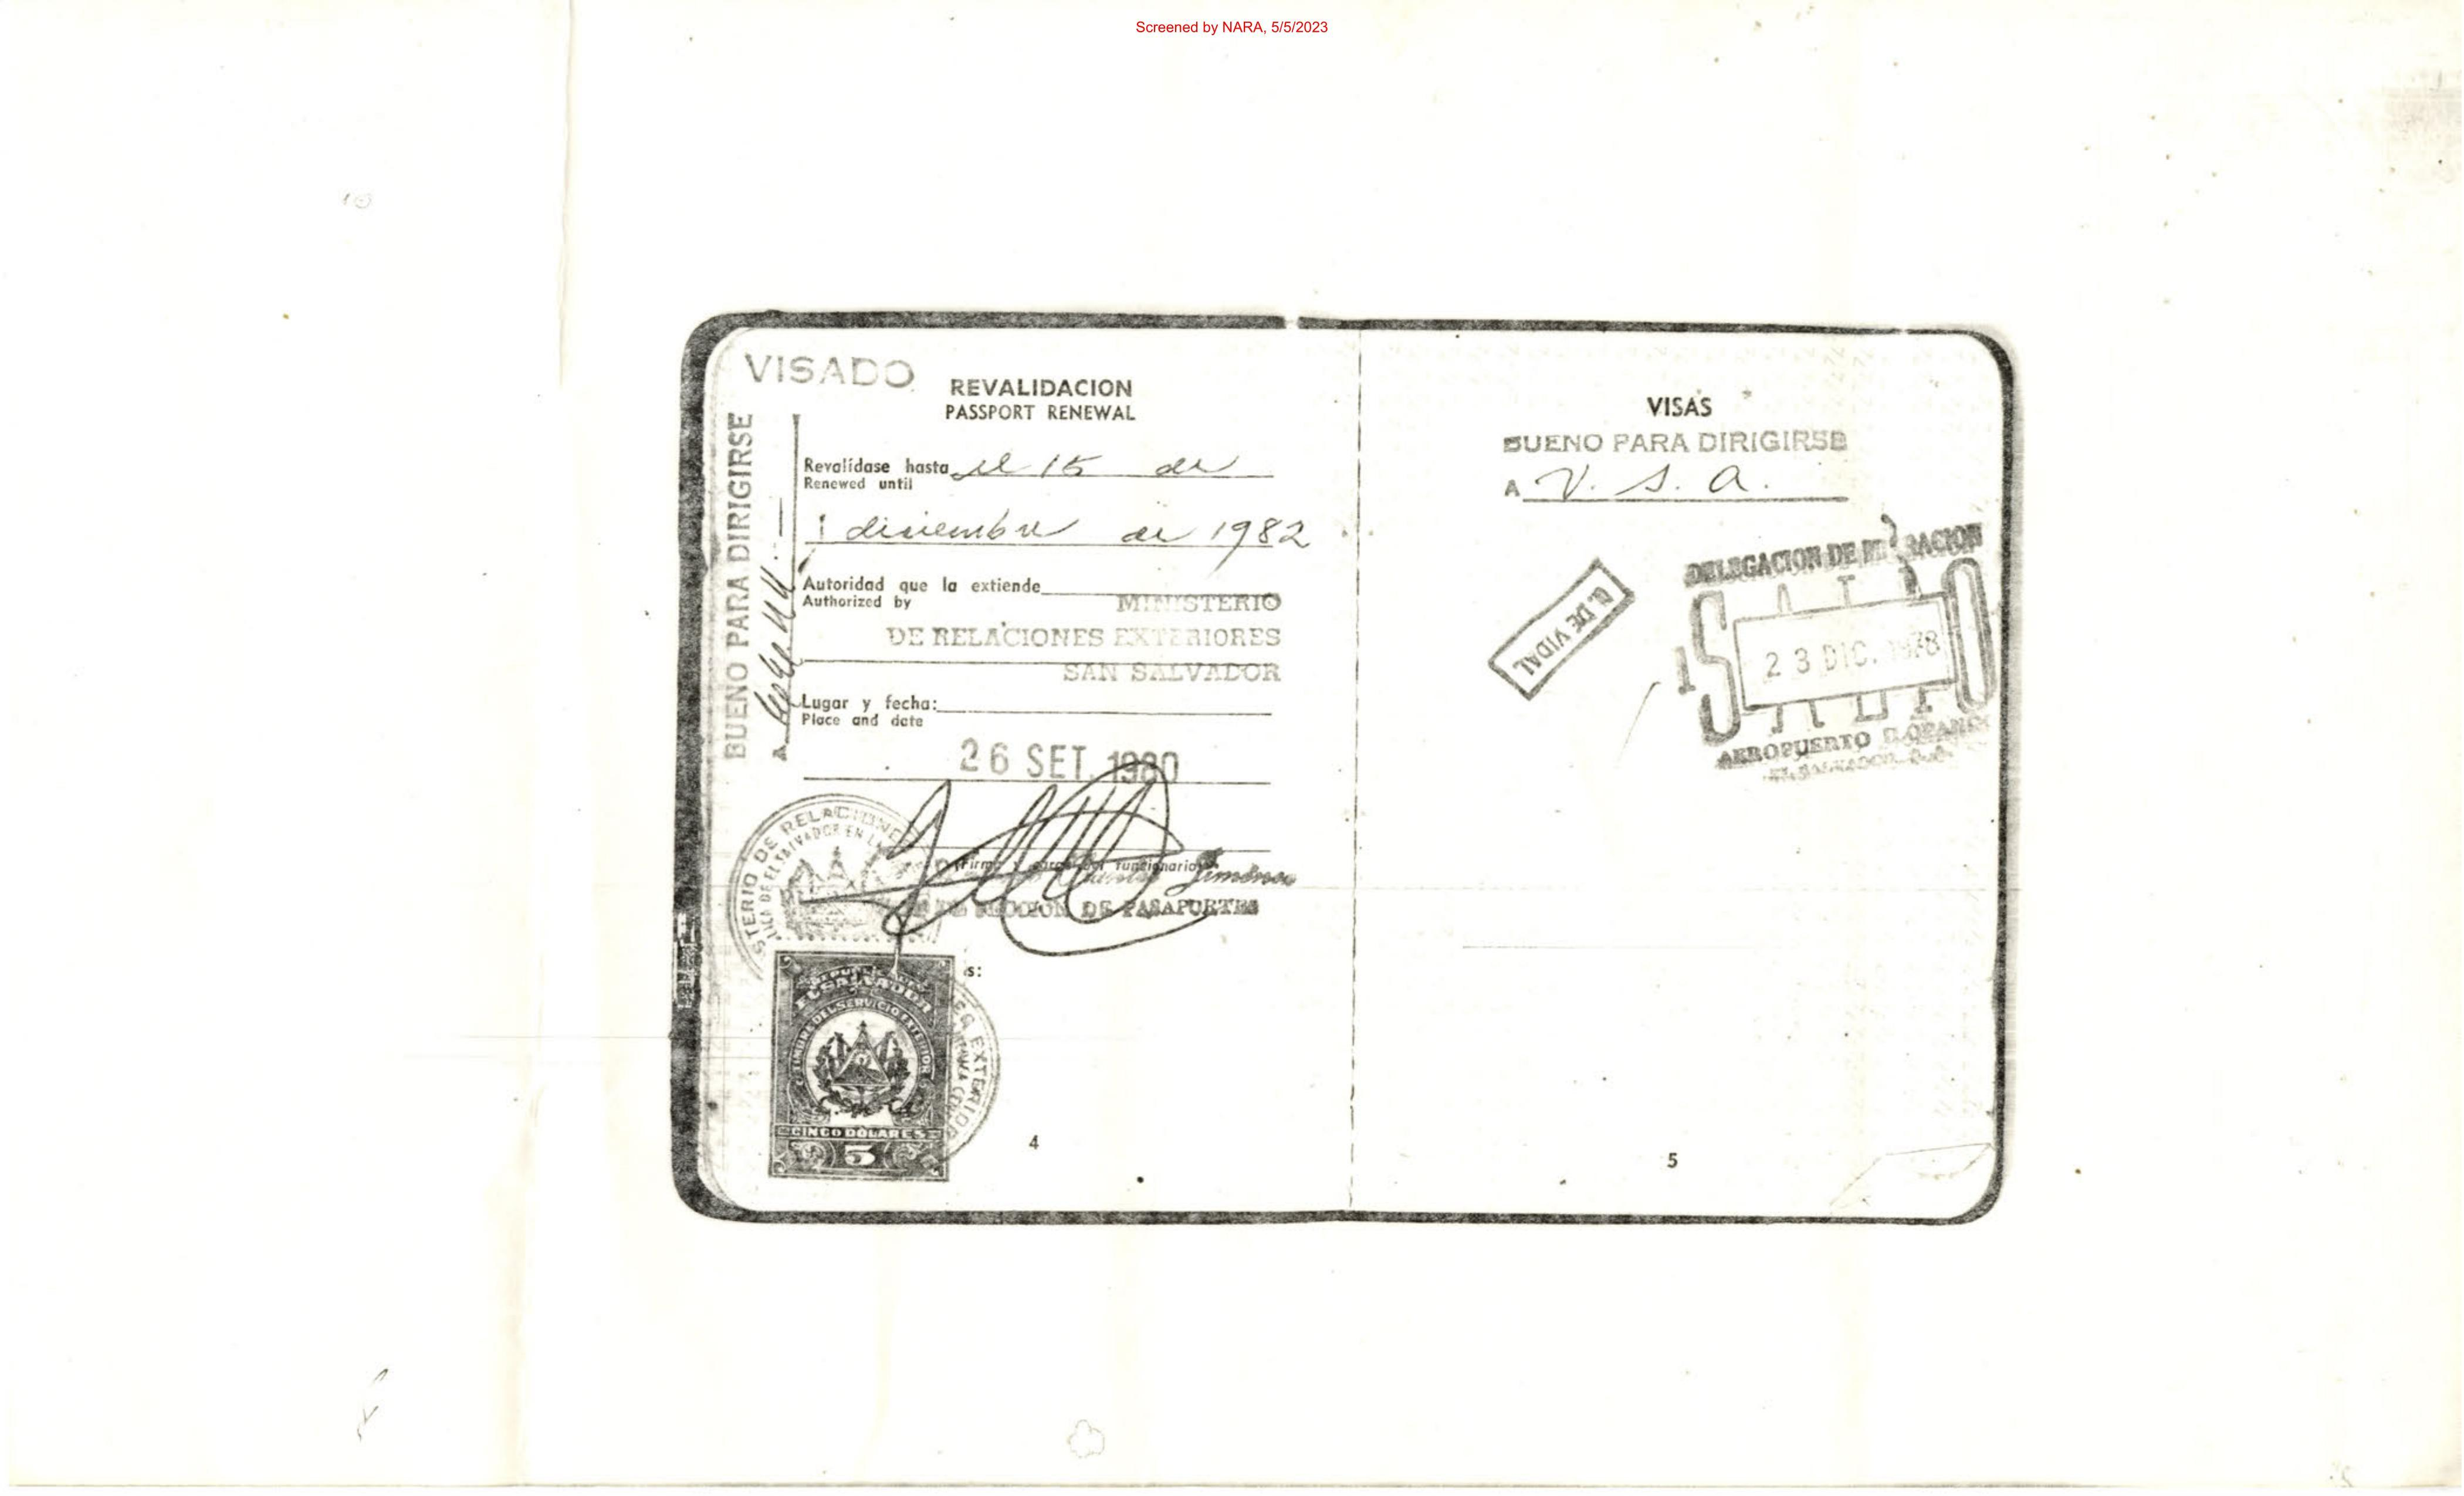 Screened by NARA, 5/5/2023
10
VISADO
BUENO PARA DIRIGIRSE
A
REVALIDACION
PASSPORT RENEWAL
Revalídase hasta el 15 de
Renewed until
diciembre de 1982
Autoridad que la extiende
Authorized by
MINISTERIO
DE RELACIONES EXTERIORES
SAN SALVADOR
Lugar y fecha:
Place and date
26 SET. 1980
STERIO DE RELACIONES
EL SALVADOR EN LA
Firma y cargo del funcionario
Jiménez
SECCION DE PASAPORTES
s:
EL SALVADOR
DEL SERVICIO EXTERIOR
CINCO DOLARES
5
EXTERIOR
4
VISAS
BUENO PARA DIRIGIRSE
A U. S. A.
G. DE VIDAL
DELEGACION DE MIGRACION
SALIDO
23 DIC. 1978
AEROPUERTO ILOPANGO
EL SALVADOR, C.A.
5